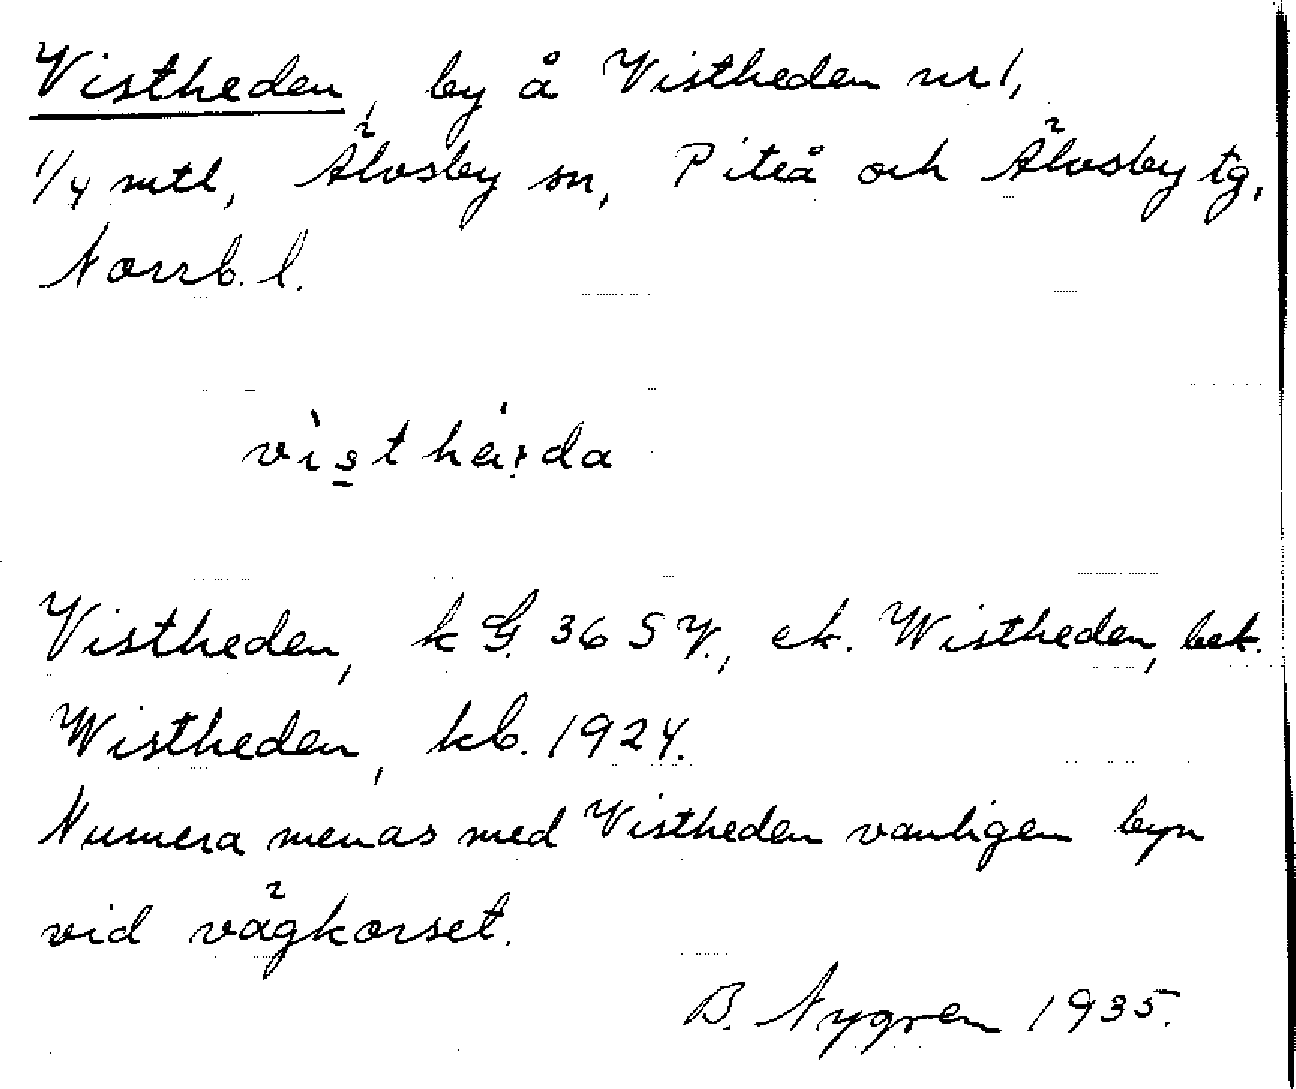 Vistheden, by å Vistheden nr 1,
1/4 mtl, Älvsby sn, Piteå och Älvsby tg,
Norrb. l.
vìstha̍i̯da
Vistheden, kG. 36 5 Y., ek. Wistheden, bet.
Wistheden, kb. 1924.
Numera menas med Vistheden vanligen byn
vid vägkorset.
B. Nygren 1935.